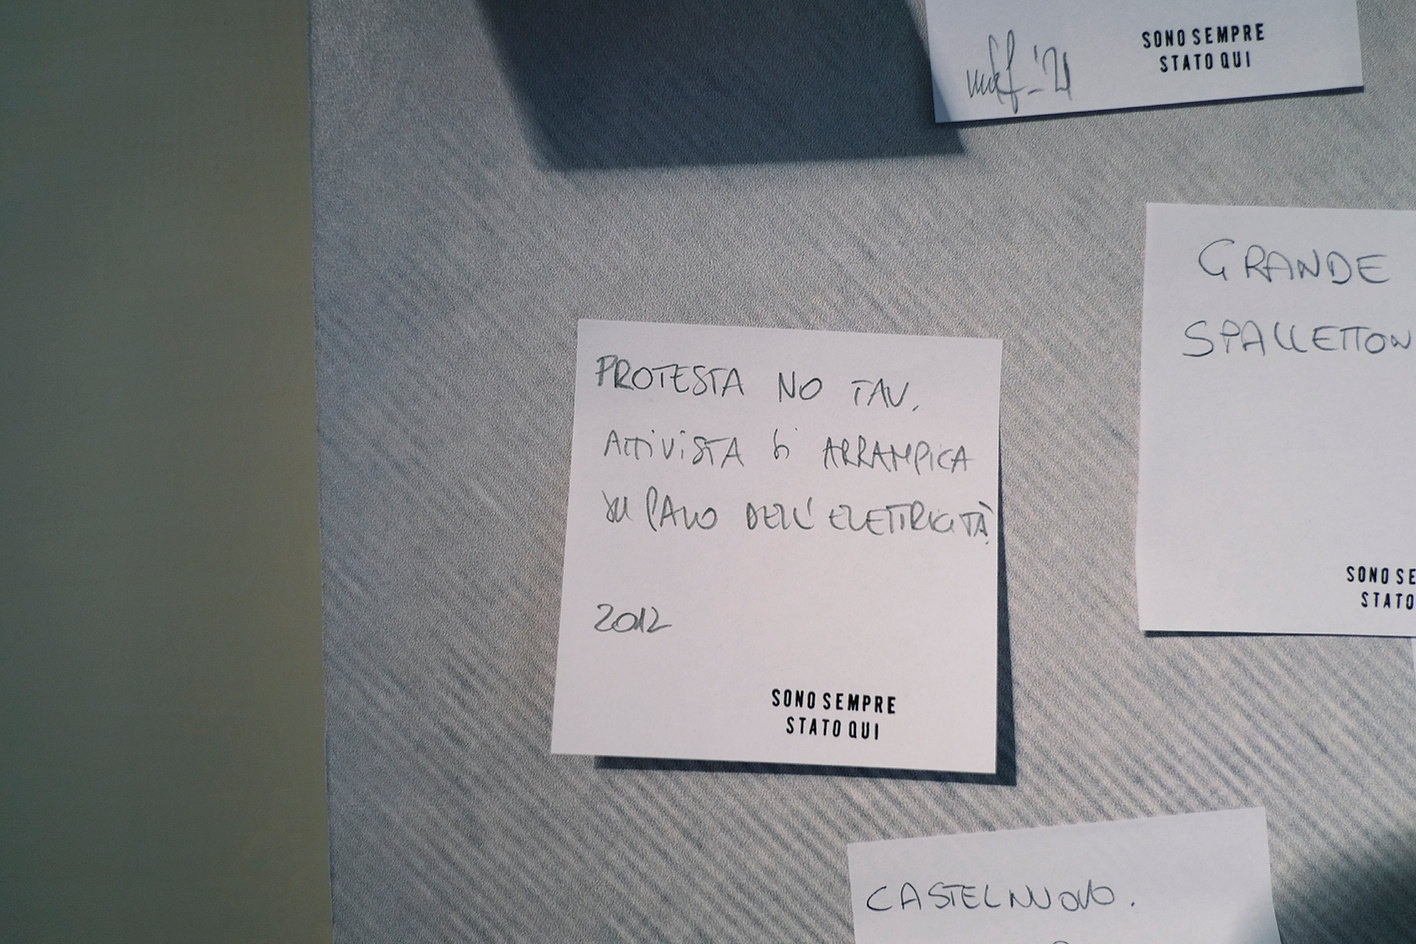 SONO SEMPRE
STATO QUI
'21
GRANDE
SPALLETTON
SONO SE
STATO
PROTESTA NO TAV.
ATTIVISTA SI ARRAMPICA
SU PALO DELL'ELETTRICITÀ
2012
SONO SEMPRE
STATO QUI
CASTELNUOVO.